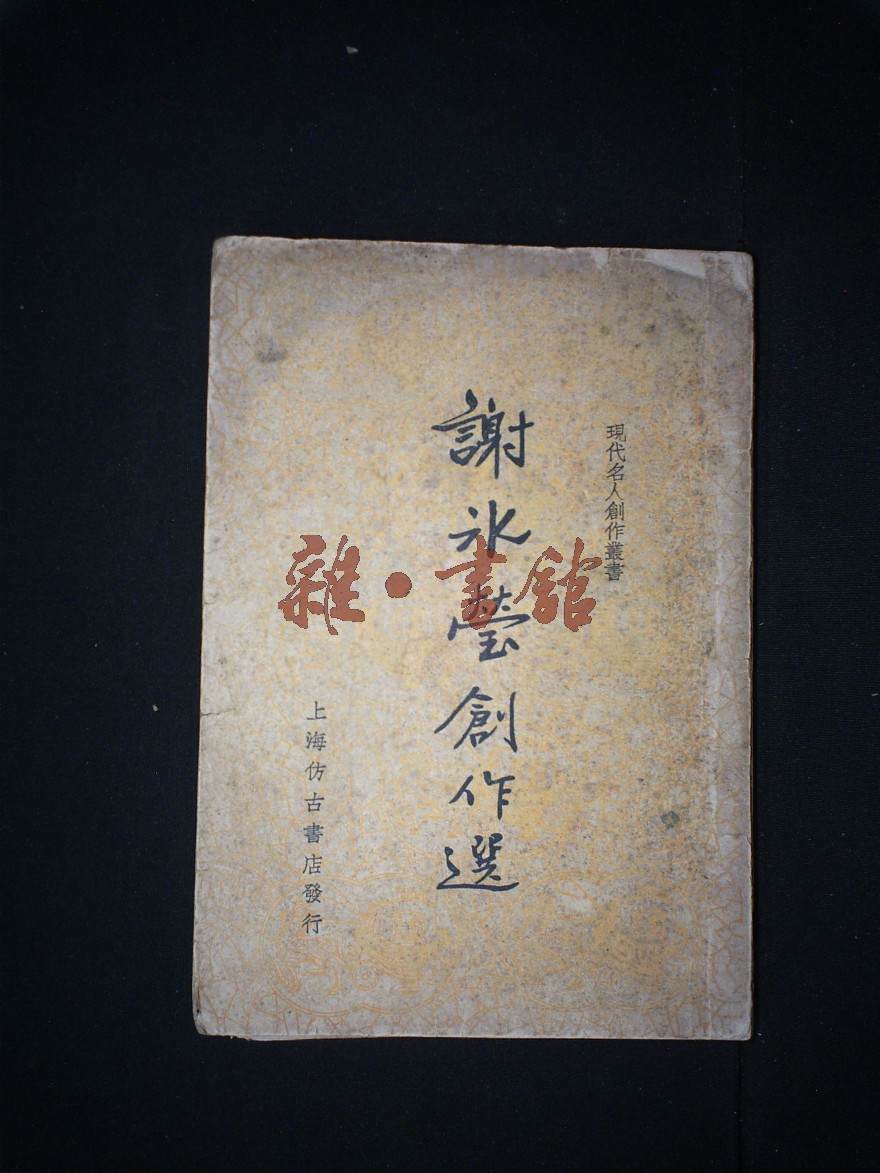 現代名人創作叢書
謝冰瑩創作選
上海仿古書店發行
雜·書館